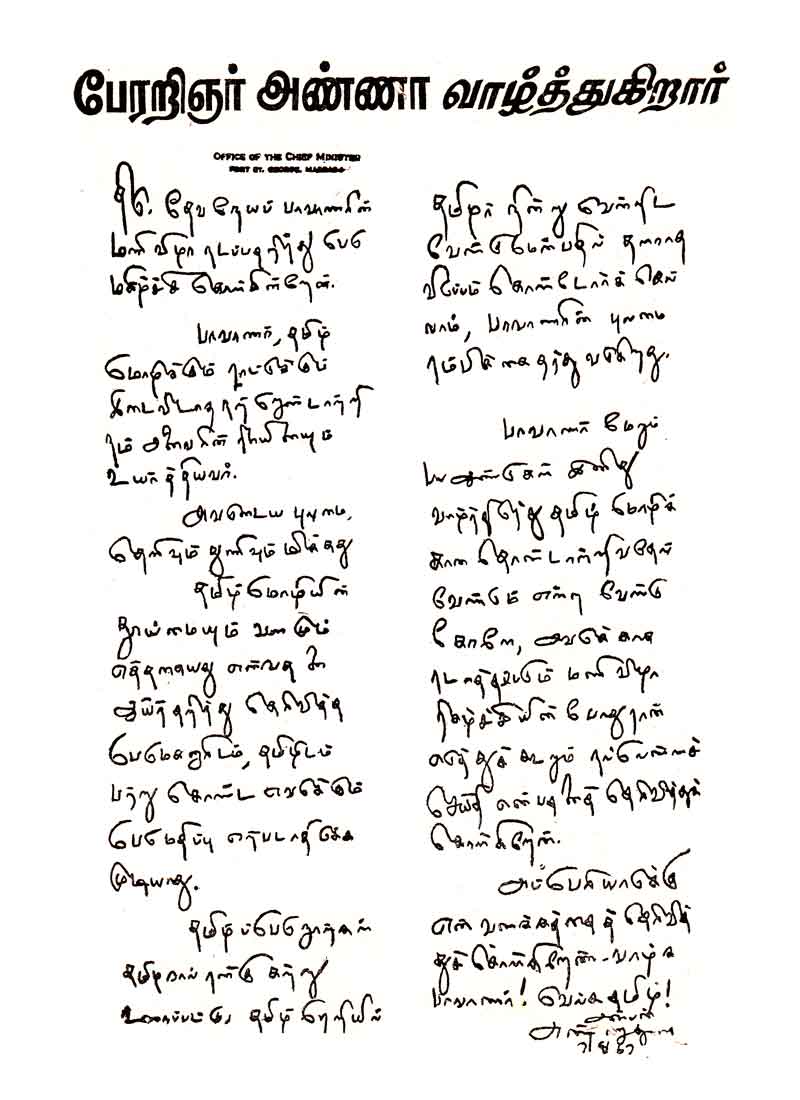 பேரறிஞர் அண்ணா வாழ்த்துகிறார்
OFFICE OF THE CHIEF MINISTER
FORT ST. GEORGE, MADRAS
திரு. தேவநேயப் பாவாணரின்
மணிவிழா நடப்பதறிந்து பெரு
மகிழ்ச்சி கொள்கின்றேன்.
பாவாணர், தமிழ்
மொழிக்கும் நாட்டுக்கும்
இடைவிடாத நற்றொண்டாற்றி
நம் அனைவரின் நிலையையும்
உயர்த்தியவர்.
அவருடைய புலமை,
தெளிவும் துணிவும் மிக்கது
தமிழ் மொழியின்
தூய்மையும் வளமும்
எத்தகையது என்பதனை
ஆய்ந்தறிந்து தெரிவித்த
பெருமகனாரிடம், தமிழிடம்
பற்று கொண்ட எவருக்கும்
பெருமதிப்பு ஏற்படாதிருக்க
முடியாது.
தமிழ்ப்பேறுநூல்கள்
தமிழரால் நன்கு கற்று
உணரப்பட்டு, தமிழ் நெறியில்
தமிழர் நின்று வென்றிட
வேண்டுமென்பதில் தளராத
விருப்பம் கொண்டோர்க் கெல்
லாம், பாவாணரின் புலமை
நம்பிக்கை தந்து வருகிறது.
பாவாணர் மேலும்
பல ஆண்டுகள் இனிது
வாழ்ந்திருந்து தமிழ் மொழிக்
கான தொண்டாற்றிவருதல்
வேண்டும் என்ற வேண்டு
கோளே, அவருக்கான
நடாத்தப்படும் மணிவிழா
நிகழ்ச்சியின் போது நான்
எடுத்துக் கூறும் நல்லெண்ணச்
செய்தி என்பதனைத் தெரிவித்துக்
கொள்கிறேன்.
அப்பெரியாருக்கு
என் வணக்கத்தைத் தெரிவித்
துக் கொள்கிறேன் - வாழ்க
பாவாணர்! வெல்க தமிழ்!
அன்பன்
அண்ணாதுரை